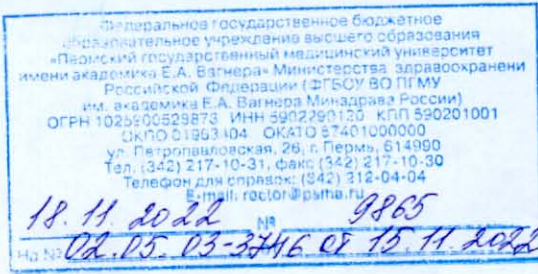 Федеральное государственное бюджетное
образовательное учреждение высшего образования
«Пермский государственный медицинский университет
имени академика Е.А. Вагнера» Министерства здравоохранени
Российской Федерации (ФГБОУ ВО ПГМУ
им. академика Е.А. Вагнера Минздрава России)
ОГРН 1025900529873 ИНН 5902290120 КПП 590201001
ОКПО 01963104 ОКАТО 57401000000
ул. Петропавловская, 26, г. Пермь, 614990
Тел. (342) 217-10-31, факс (342) 217-10-30
Телефон для справок: (342) 212-04-04
E-mail: rector@psma.ru
18.11.2022 № 9865
На № 02.05.03-3746 от 15.11.2022